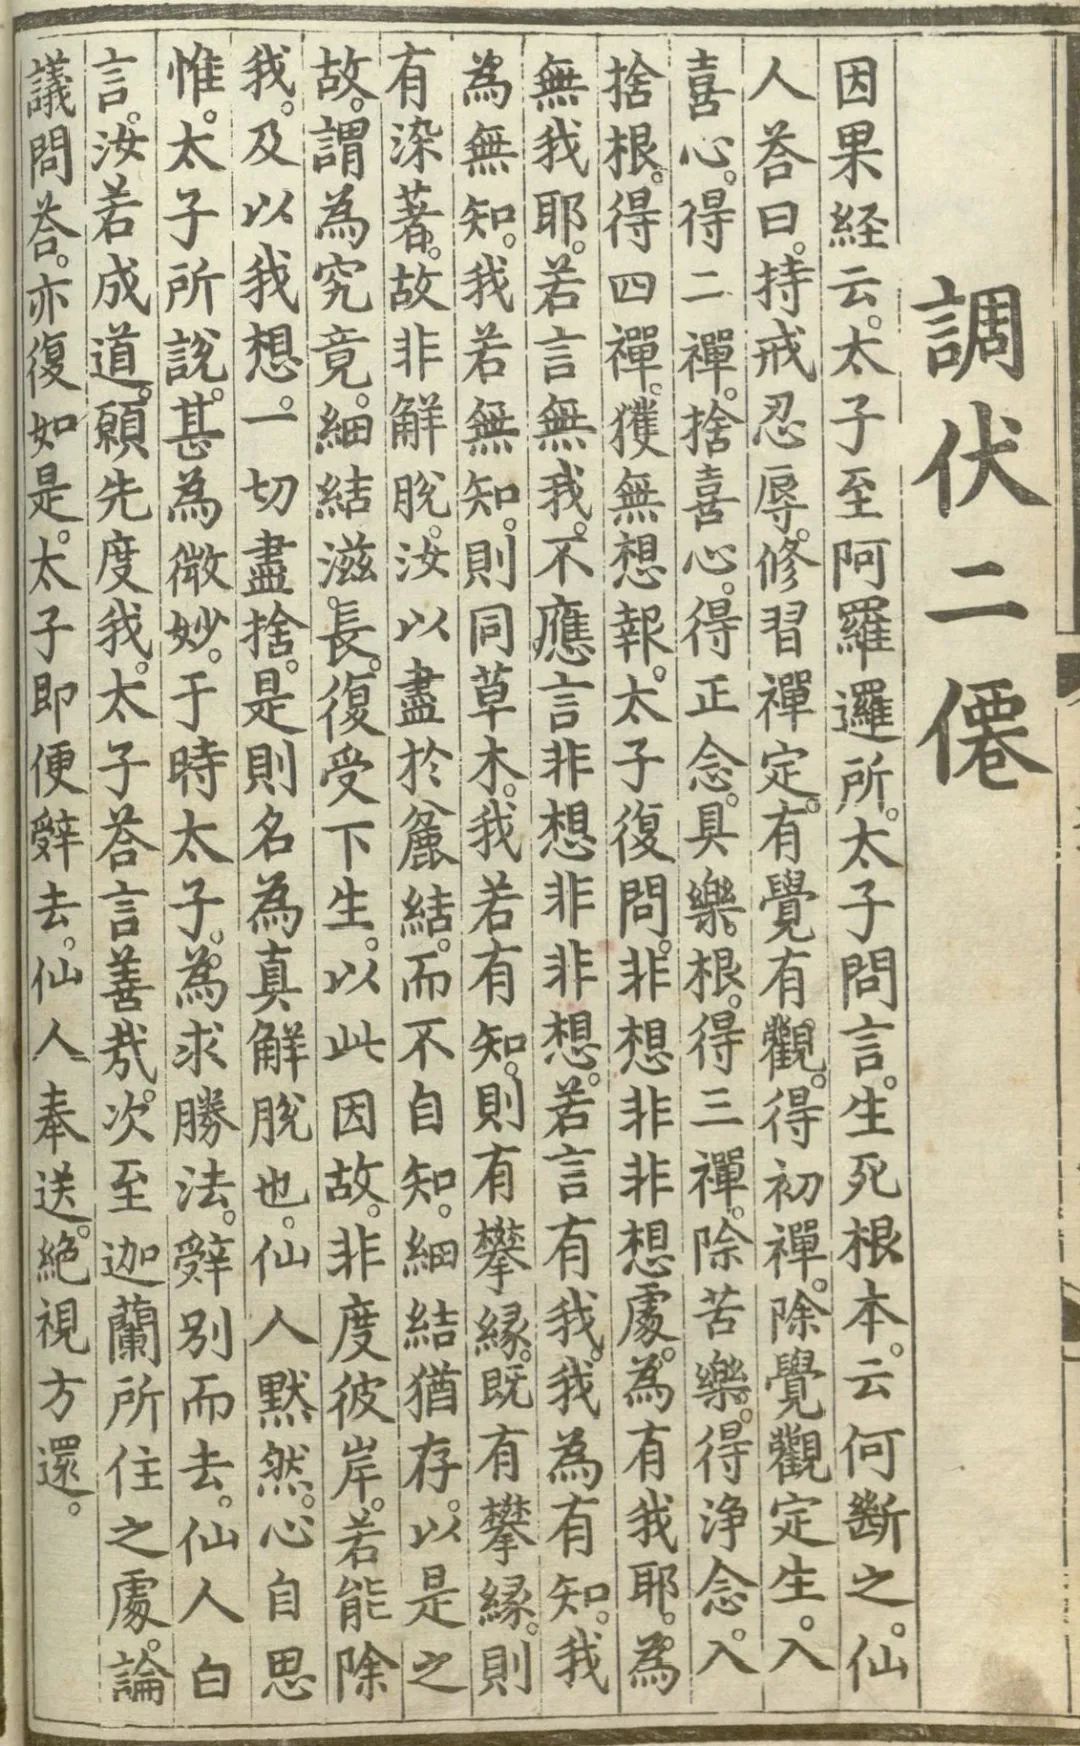 調伏二僊
因果経云。太子至阿羅邏所。太子問言。生死根本。云何斷之。仙
人荅曰。持戒忍辱。修習禪定。有覺有觀。得初禪。除覺觀定生。入
喜心。得二禪。捨喜心。得正念。具樂根。得三禪。除苦樂。得淨念。入
捨根。得四禪。獲無想報。太子復問。非想非非想處。為有我耶。為
無我耶。若言無我。不應言非想非非想。若言有我。我為有知。我
為無知。我若無知。則同草木。我若有知。則有攀緣。既有攀緣。則
有染著。故非解脫。汝以盡於麄結。而不自知。細結猶存。以是之
故。謂為究竟。細結滋長。復受下生。以此因故。非度彼岸。若能除
我。及以我想。一切盡捨。是則名為真解脫也。仙人默然。心自思
惟。太子所說。甚為微妙。于時太子。為求勝法。辤別而去。仙人白
言。汝若成道。願先度我。太子荅言善哉。次至迦蘭所住之處。論
議問荅。亦復如是。太子即便辤去。仙人奉送。絕視方還。